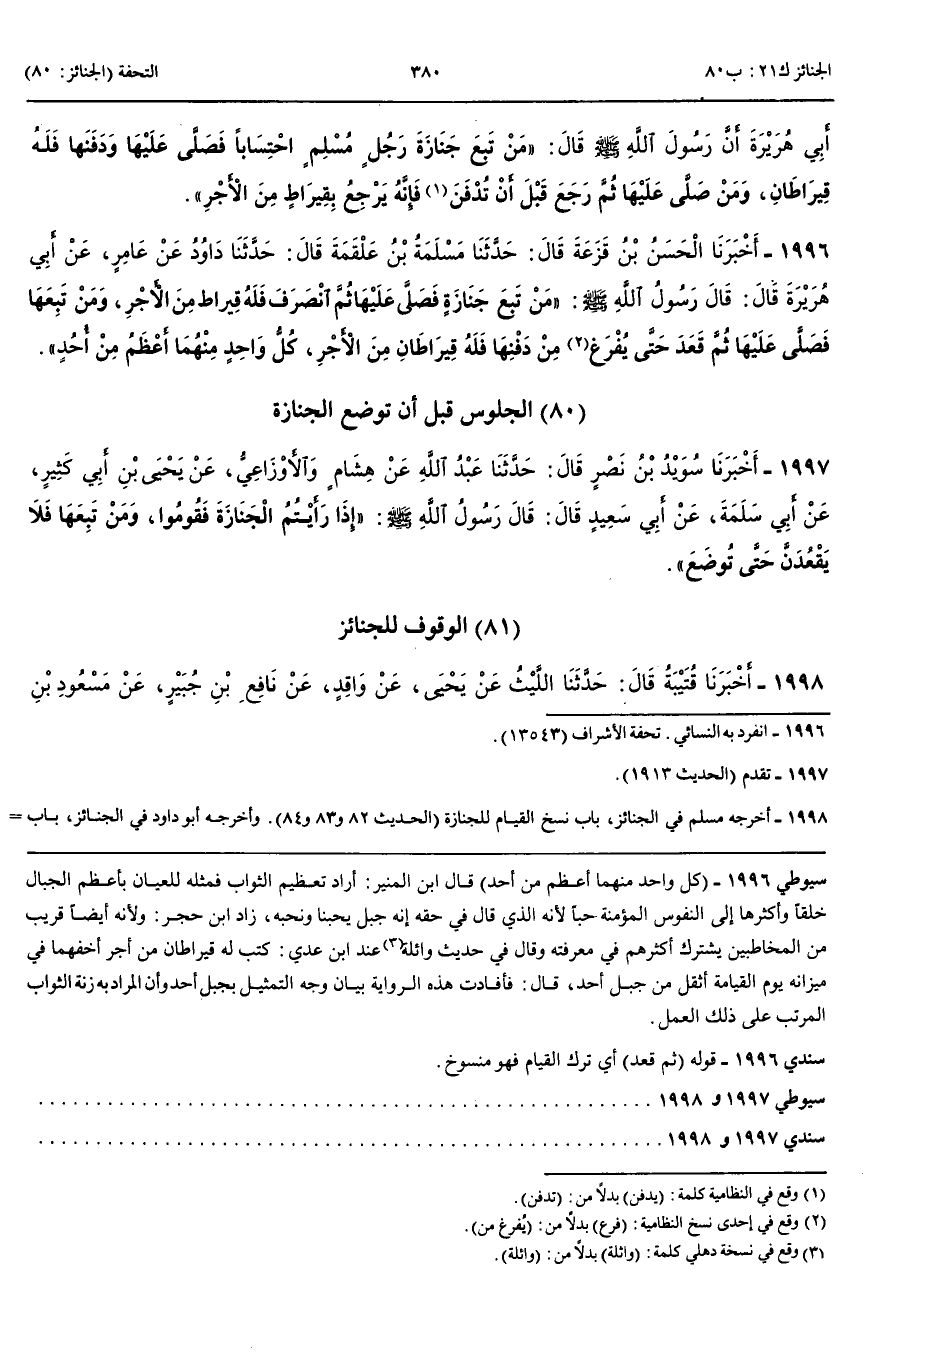 الجنائز ك٢١: ب٨٠ ٣٨٠ التحفة (الجنائز: ٨٠)
أَبِي هُرَيْرَةَ أَنَّ رَسُولَ ٱللَّهِ ﷺ قَالَ: «مَنْ تَبِعَ جَنَازَةَ رَجُلٍ مُسْلِمٍ احْتِسَاباً فَصَلَّى عَلَيْهَا وَدَفَنَهَا فَلَهُ
قِيرَاطَانِ، وَمَنْ صَلَّى عَلَيْهَا ثُمَّ رَجَعَ قَبْلَ أَنْ تُدْفَنَ(١) فَإِنَّهُ يَرْجِعُ بِقِيرَاطٍ مِنَ الْأَجْرِ».
١٩٩٦ ـ أَخْبَرَنَا الْحَسَنُ بْنُ قَزَعَةَ قَالَ: حَدَّثَنَا مَسْلَمَةُ بْنُ عَلْقَمَةَ قَالَ: حَدَّثَنَا دَاوُدُ عَنْ عَامِرٍ، عَنْ أَبِي
هُرَيْرَةَ قَالَ: قَالَ رَسُولُ ٱللَّهِ ﷺ: «مَنْ تَبِعَ جَنَازَةٍ فَصَلَّى عَلَيْهَا ثُمَّ انْصَرَفَ فَلَهُ قِيرَاط مِنَ الْأَجْرِ، وَمَنْ تَبِعَهَا
فَصَلَّى عَلَيْهَا ثُمَّ قَعَدَ حَتَّى يُفْرَغَ(٢) مِنْ دَفْنِهَا فَلَهُ قِيرَاطَانِ مِنَ الْأَجْرِ، كُلُّ وَاحِدٍ مِنْهُمَا أَعْظَمُ مِنْ أُحُدٍ».
(٨٠) الجلوس قبل أن توضع الجنازة
١٩٩٧ ـ أَخْبَرَنَا سُوَيْدُ بْنُ نَصْرٍ قَالَ: حَدَّثَنَا عَبْدُ ٱللَّهِ عَنْ هِشَامٍ وَٱلْأَوْزَاعِيُّ، عَنْ يَحْيَى بْنِ أَبِي كَثِيرٍ،
عَنْ أَبِي سَلَمَةَ، عَنْ أَبِي سَعِيدٍ قَالَ: قَالَ رَسُولُ ٱللَّهِ ﷺ: «إِذَا رَأَيْتُمُ الْجَنَازَةَ فَقُومُوا، وَمَنْ تَبِعَهَا فَلَا
يَقْعُدَنَّ حَتَّى تُوضَعَ».
(٨١) الوقوف للجنائز
١٩٩٨ ـ أَخْبَرَنَا قُتَيْبَةُ قَالَ: حَدَّثَنَا اللَّيْثُ عَنْ يَحْيَى، عَنْ وَاقِدٍ، عَنْ نَافِعِ بْنِ جُبَيْرٍ، عَنْ مَسْعُودِ بْنِ
١٩٩٦ ـ انفرد به النسائي. تحفة الأشراف (١٣٥٤٣).
١٩٩٧ ـ تقدم (الحديث ١٩١٣).
١٩٩٨ ـ أخرجه مسلم في الجنائز، باب نسخ القيام للجنازة (الحديث ٨٢ و٨٣ و٨٤). وأخرجه أبو داود في الجنائز، باب =
سيوطي ١٩٩٦ ـ (كل واحد منهما أعظم من أحد) قال ابن المنير: أراد تعظيم الثواب فمثله للعيان بأعظم الجبال
خلقاً وأكثرها إلى النفوس المؤمنة حباً لأنه الذي قال في حقه إنه جبل يحبنا ونحبه، زاد ابن حجر: ولأنه أيضاً قريب
من المخاطبين يشترك أكثرهم في معرفته وقال في حديث واثلة(٣) عند ابن عدي: كتب له قيراطان من أجر أخفهما في
ميزانه يوم القيامة أثقل من جبل أحد، قال: فأفادت هذه الرواية بيان وجه التمثيل بجبل أحد وأن المراد به زنة الثواب
المرتب على ذلك العمل.
سندي ١٩٩٦ ـ قوله (ثم قعد) أي ترك القيام فهو منسوخ.
سيوطي ١٩٩٧ و ١٩٩٨ . . . . . . . . . . . . . . . . . . . .
سندي ١٩٩٧ و ١٩٩٨ . . . . . . . . . . . . . . . . . . . .
(١) وقع في النظامية كلمة: (يدفن) بدلاً من: (تدفن).
(٢) وقع في إحدى نسخ النظامية: (فرع) بدلاً من: (يُفرغ من).
(٣) وقع في نسخة دهلي كلمة: (وائلة) بدلاً من: (واثلة).